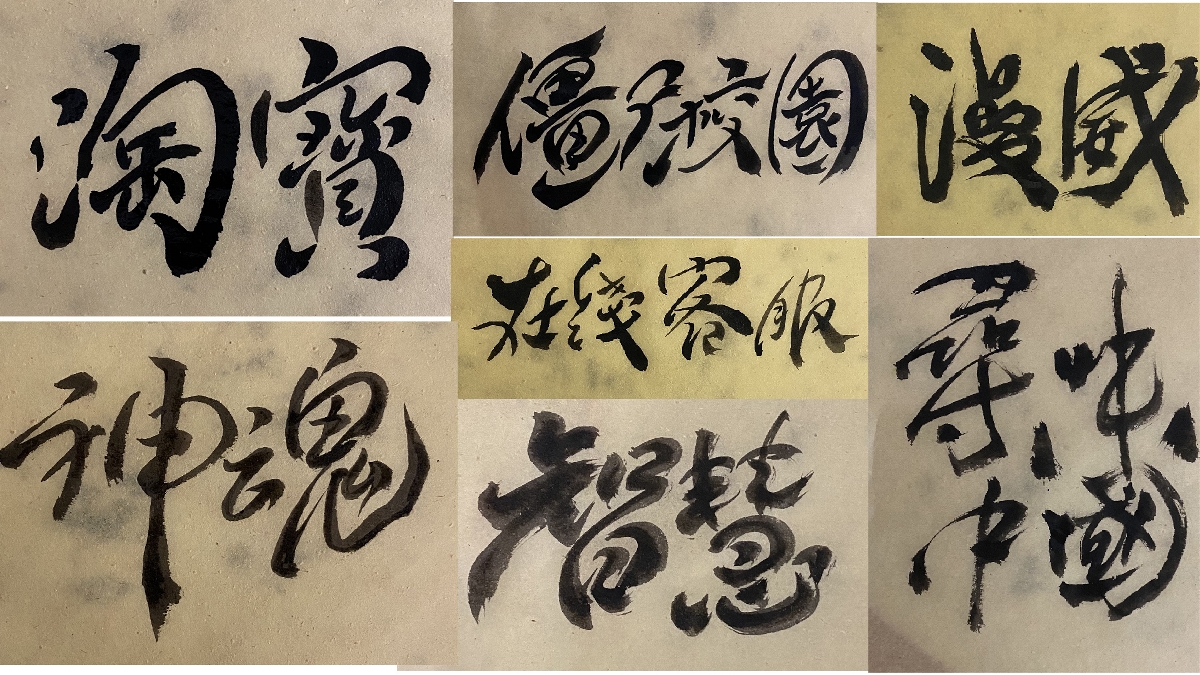 淘寶
僵尸校園
漫威
在綫客服
神魂
智慧
尋味
中國